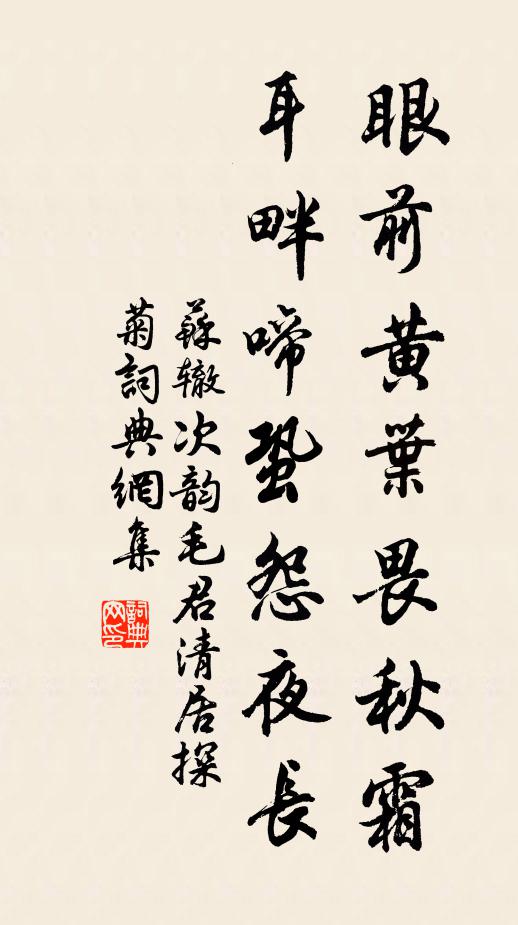 眼前黃葉畏秋霜
耳畔啼蛩怨夜長
蘇辙次韵毛君清居探
菊詞典網集
詞典
网印